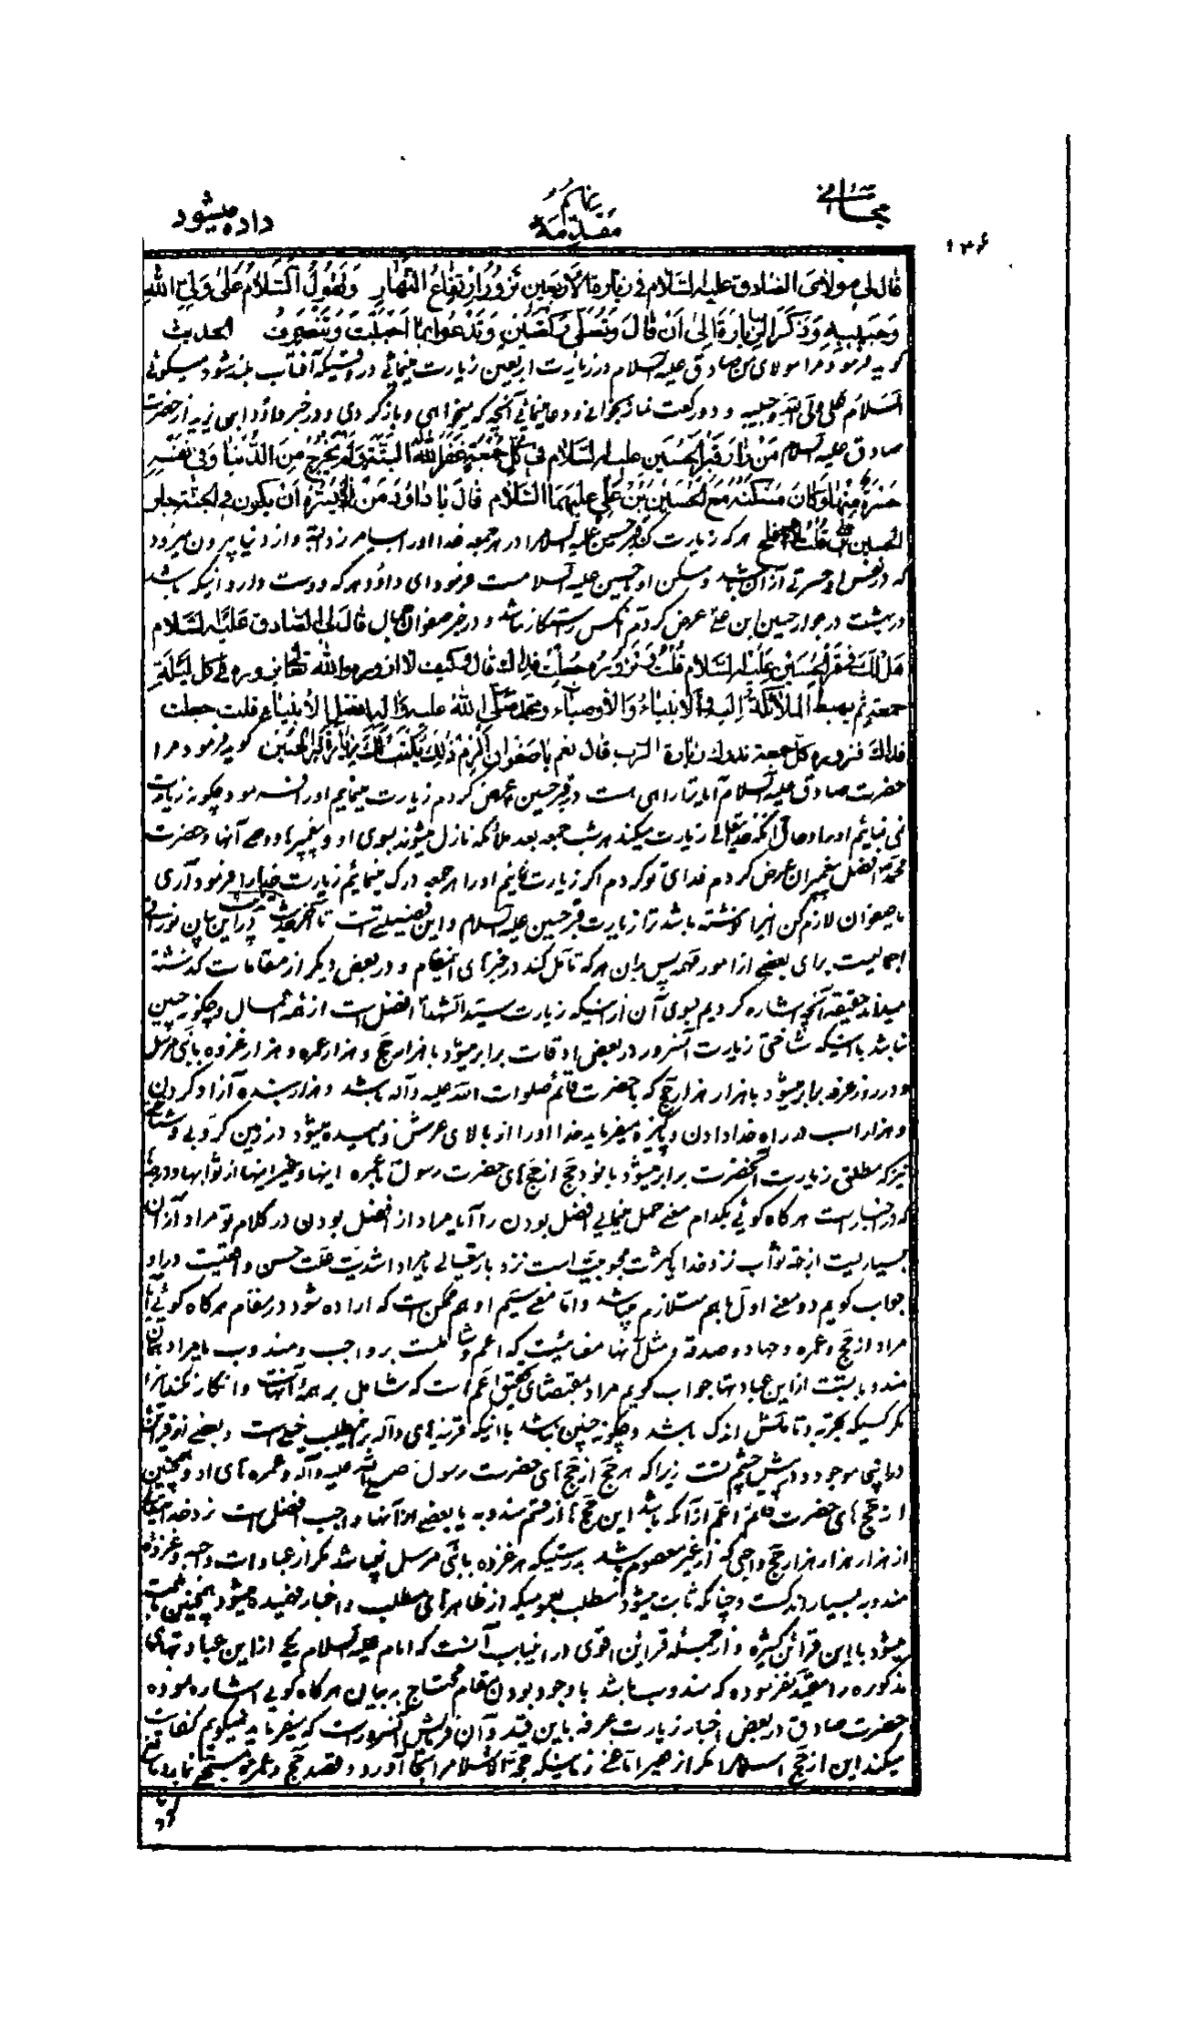 مقدمه
داده میشود
۱۳۶
قال لی مولای الصادق علیه السلام فی زیارة الاربعین تزور ارتفاع النهار و تقول السلام علی ولی الله
و حبیبه و ذکر الزیارة الی ان قال و تصلی رکعتین و تدعو بما احببت و تنصرف الحدیث
گوید فرمود مرا مولای من صادق علیه السلام در زیارت اربعین زیارت مینمائی در وقتیکه آفتاب بلند شود میگوئی
السلام علی ولی الله و حبیبه و دو رکعت نماز بخوانی و دعا نمائی آنچه که میخواهی و باز گردی و در خبر داود ابن یزید از حضرت
صادق علیه السلام من زار قبر الحسین علیه السلام فی کل جمعة غفر الله له البتة و لم یخرج من الدنیا و فی نفسه
حسرة منها و کان مسکنه مع الحسین بن علی علیهما السلام قال یا داود من لا یسره ان یکون فی الجنة جار
الحسین قلت من لا افلح هر که زیارت کند قبر حسین علیه السلام را در هر جمعه خدا او را بیامرزد البته و از دنیا بیرون نمیرود
که در نفس او حسرتی از آن باشد و مسکن او با حسین علیه السلام است فرمود ای داود هر که دوست دارد آنیکه باشد
در بهشت در جوار حسین ابن علی عرض کردم آنکس رستگار نباشد و در خبر صفوان جمال قال لی الصادق علیه السلام
هل لک فی قبر الحسین علیه السلام قلت و تزوره جعلت فداک قال و کیف لا ازوره و الله تعالی یزوره فی کل لیلة
جمعة ثم یهبط الملائکة الیه و الانبیاء و الاوصیاء و محمد صلی الله علیه و آله افضل الانبیاء قلت جعلت
فداک فنزوره کل جمعة ندرک زیارة الرب قال نعم یا صفوان الزم ذلک یکتب لک زیارة قبر الحسین گوید فرمود مرا
حضرت صادق علیه السلام آیا ترا راهی هست در قبر حسین عرض کردم زیارت مینمایم او را فرمود چگونه زیارت
نمی نمایم او را و حال آنکه خدایتعالی زیارت میکند هر شب جمعه بعد ملائکه نازل میشوند بسوی او و پیغمبرها و وصی آنها و حضرت
محمد افضل پیغمبران عرض کردم فدای تو گردم اگر زیارت نمایم او را هر جمعه درک مینمایم زیارت خدا را فرمود آری
یا صفوان لازم کن اینرا نوشته باشد ترا زیارت قبر حسین علیه السلام و این فضیلتی است تا آخر حدیث در این بیان نورانی
اجمالیست برای بعضی از امور فهمد پس بدان هر که تأمل کند در خبرهای اینمقام و در بعض دیگر از مقامات گذشته
میداند حقیقة آنچه اشاره کردیم بسوی آن از اینکه زیارت سید الشهدا افضل است از همه اعمال و چگونه چنین
نباشد با اینکه شناختی زیارت آنسرور در بعض اوقات برابر میشود با هزار حج و هزار عمره و هزار غزوه با نبی مرسل
و در روز عرفه برابر میشود با هزار هزار حج که با حضرت قائم صلوات الله علیه و آله باشد و هزار بنده آزاد کردن
و هزار اسب در راه خدا دادن و پاکیزه میفرماید خدا او را از بالای عرش و نامیده میشود در زمین کروبی و شناختی
نیز که مطلق زیارت آنحضرت برابر میشود با نود حج از حج های حضرت رسول با عمره اینها و غیر اینها از ثوابها و درجات
که در اخبار است هرگاه گوئی بکدام معنی حمل مینمایی افضل بودن را آیا مراد از افضل بودن در کلام تو مراد از آن
بسیاریست از جهة ثواب نزد خدا یا کثرت محبوبیت است نزد باریتعالی یا مراد اشدیت علت حسن و اهمیت در او
جواب گویم دو معنی اول با هم متلازم میباشد و اما معنی سیم او هم ممکن است که اراده شود در مقام هرگاه گوئی آیا
مراد از حج و عمره و جهاد و صدقه و مثل آنها معنائیست که اعم و شامل است بر واجب و مندوب یا مراد همان
مندوبست از این عبادتها جواب گویم مراد بمقتضای تحقیق اعم است که شامل بر همه آنهاست و انکار نکند اینرا
مگر کسیکه تجربه و تأملش اندک باشد و چگونه چنین نباشد با اینکه قرینه های داله بر این مطلب خیلی است و بعضی از قراین
در اینجا موجود در پیش چشم است زیرا که هر حج از حج های حضرت رسول صلی الله علیه و آله و عمره های او و همچنین
از حج های حضرت قائم اعم از آنکه باشد این حج ها از قسم مندوبه یا بعضی از آنها واجب افضل است نزد خدایتعالی
از هزار هزار حج واجبی که از غیر معصوم باشد بدرستیکه هر غزوه با نبی مرسل نمیباشد مگر از عبادات واجبه و غزوه
مندوبه بسیار اندکست و چنانکه ثابت میشود مطلب بعمومیکه از ظاهرهای مطلب و اخبار فهمیده میشود همچنین ثابت
میشود با این قرائن کثیره و از جمله قرائن اقوی در اینباب آنست که امام علیه السلام یکی از این عبادتهای
مذکوره را مقید نفرموده که مندوب باشد با وجود بودن مقام محتاج به بیان هرگاه گویی اشاره نموده
حضرت صادق در بعض اخبار زیارت عرفه باین قید و آن فرمایش آنسرور است که میفرماید نمیگویم کفایت
میکند این از حج اسلام را مگر از همیرا تا حینی زمانیکه حجة الاسلام را بجا آورد و قصد حج و عمره مستحبی نماید